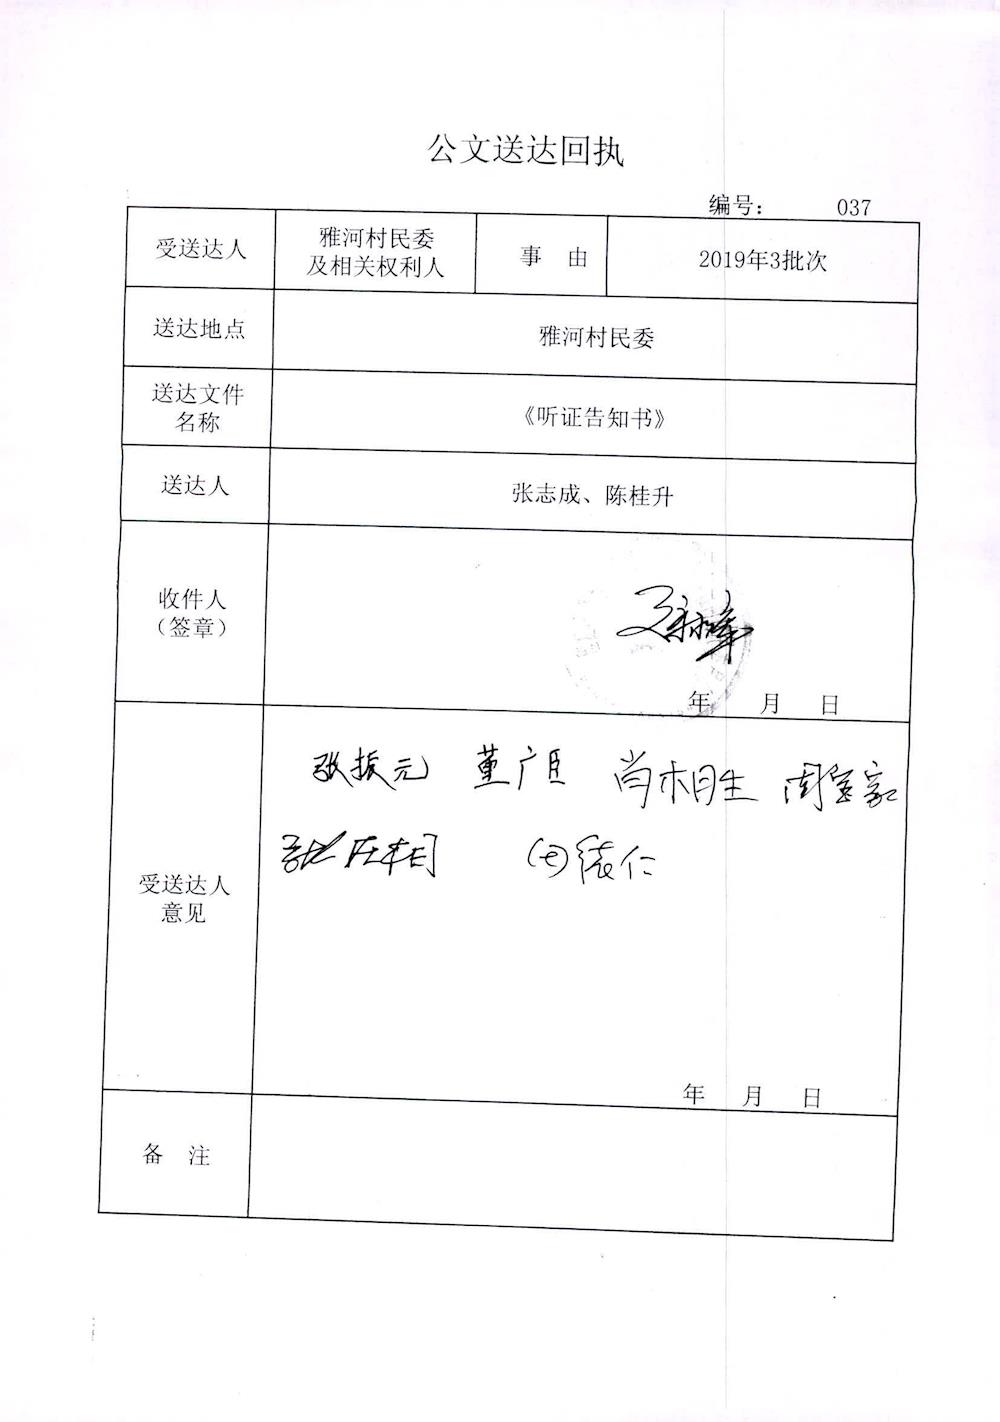 公文送达回执
编号： 037
受送达人 雅河村民委及相关权利人 事 由 2019年3批次
送达地点 雅河村民委
送达文件名称 《听证告知书》
送达人 张志成、陈桂升
收件人（签章）
年 月 日
张振元 董广臣 尚相生
受送达人意见
年 月 日
备 注